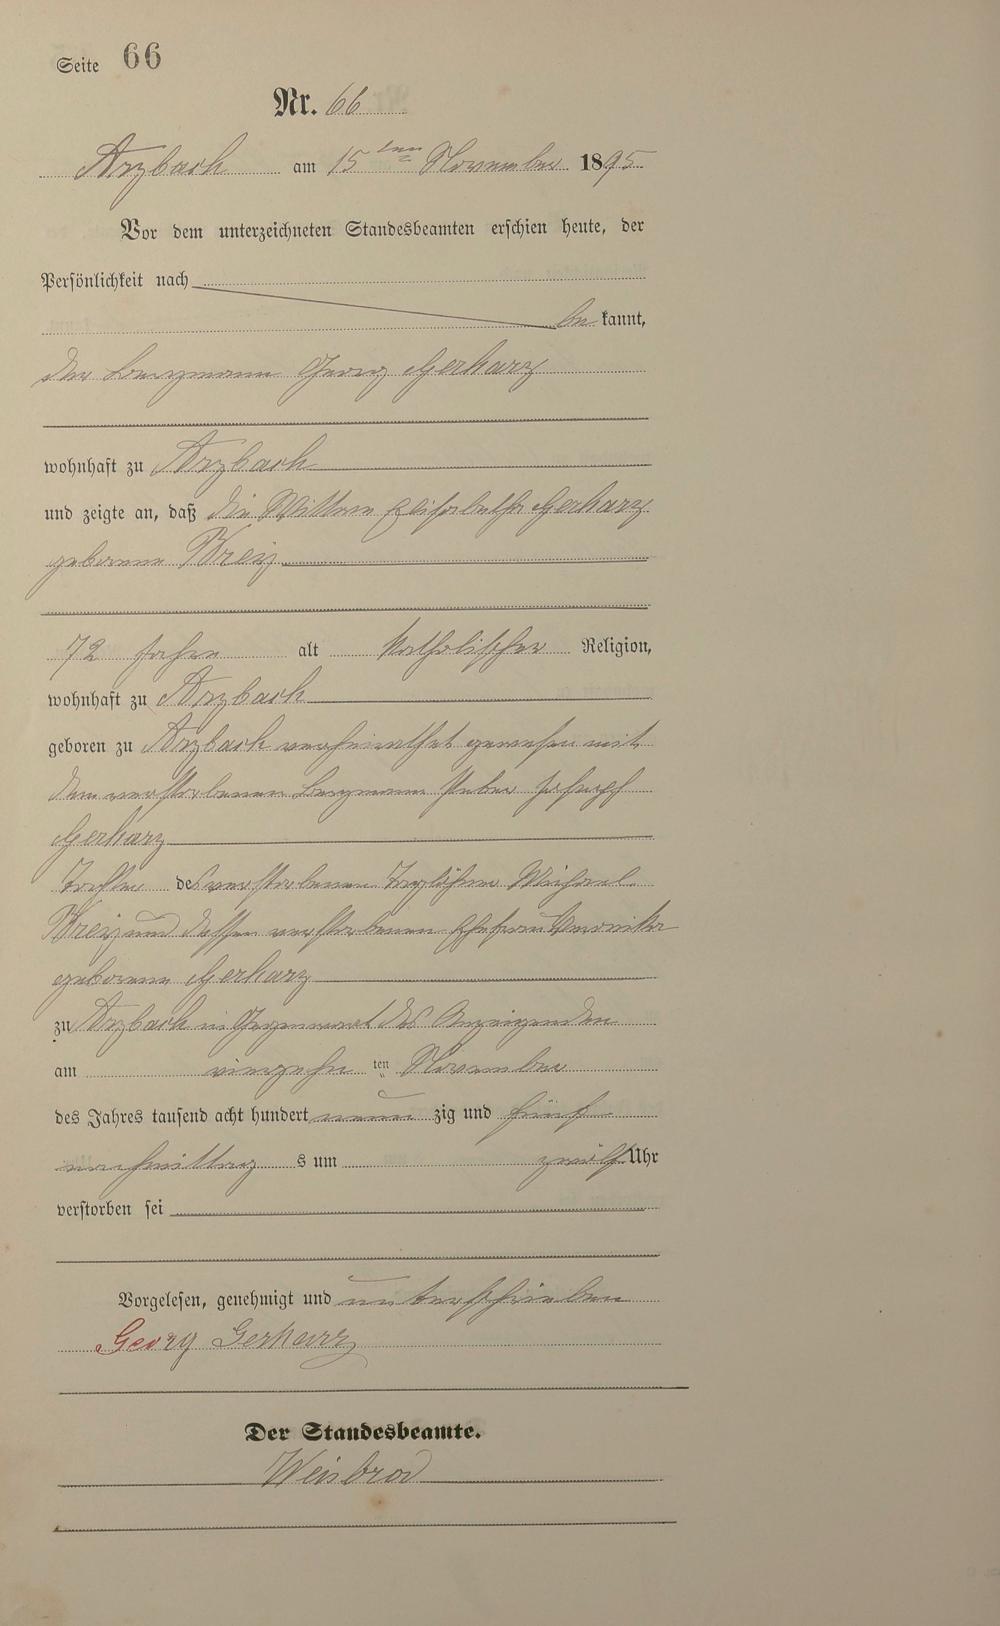 Seite 66
Nr. 66
Arzbach am 15ten November 1895
Vor dem unterzeichneten Standesbeamten erschien heute, der
Persönlichkeit nach
bekannt,
der Bergmann Georg Gerharz
wohnhaft zu Arzbach
und zeigte an, daß die Wittwe Elisabetha Gerharz
geborene Breiz
72 Jahre alt katholischer Religion,
wohnhaft zu Arzbach
geboren zu Arzbach verheirathet gewesen mit
dem verstorbenen Bergmann Peter Joseph
Gerharz
Tochter des verstorbenen Taglöhner Michael
Breiz und dessen verstorbenen Ehefrau Veronika
geborene Gerharz
zu Arzbach in Gegenwart des Anzeigenden
am vierzehn ten November
des Jahres tausend acht hundert neun zig und fünf
nachmittag s um zwölf Uhr
verstorben sei
Vorgelesen, genehmigt und unterschrieben
Georg Gerharz
Der Standesbeamte.
Weisbrod